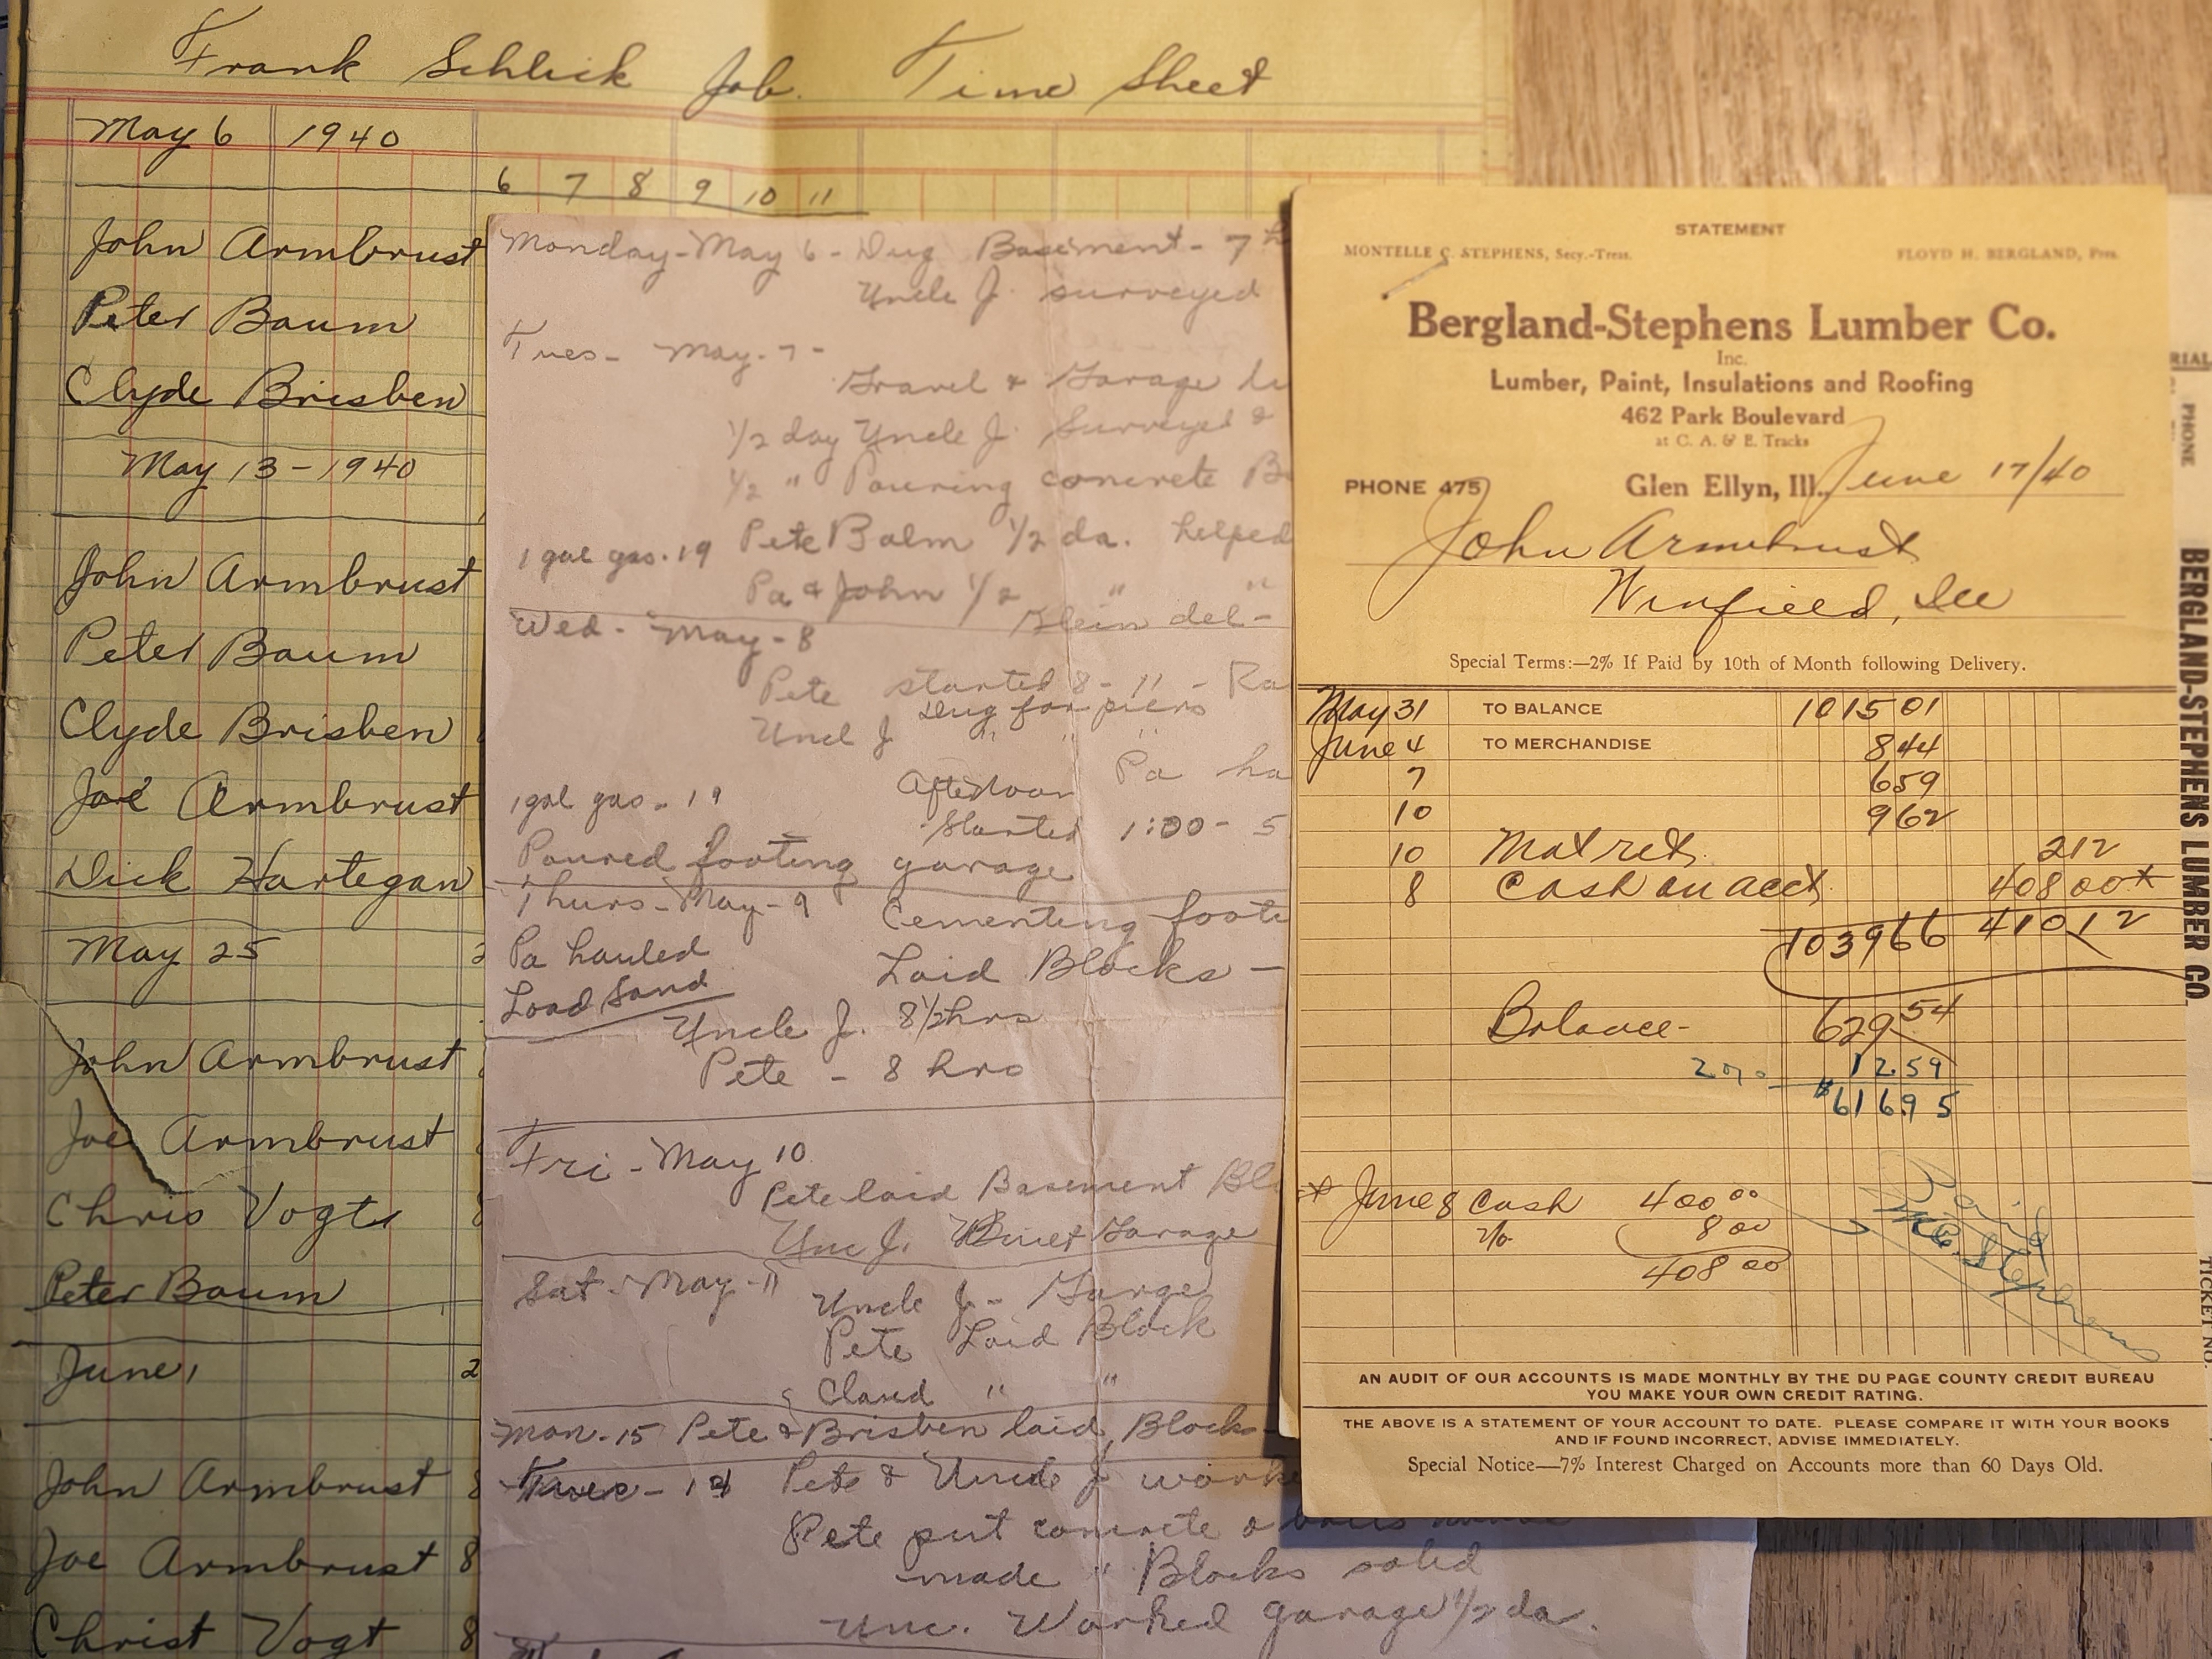 Frank Schlick Job. Time Sheet
May 6 1940
6 7 8 9 10 11
John Armbrust
Peter Baum
Clyde Brisben
May 13-1940
John Armbrust
Peter Baum
Clyde Brisben
Joe Armbrust
Dick Hartegan
May 25
John Armbrust
Joe Armbrust
Chris Vogt
Peter Baum
June 1
2
John Armbrust 8
Joe Armbrust 8
Christ Vogt 8
Monday-May 6-Dug Basement- 7
Uncle J. surveyed
Tues- May-7-
Gravel & Garage
1/2 day Uncle J. Surveyed &
1/2 " Pouring concrete
1 gal gas.19 Pete Balm 1/2 da. helped
Pa & John 1/2 " "
Wed- May-8 del-
Pete started 8-11-
Dug for piers
Uncl J " " "
Pa
1 gal gas-19 Afternoon
Started 1:00- 5
Poured footing garage
Thurs-May-9 Cementing
Pa hauled
Load Sand
Laid Blocks-
Uncle J. 8 1/2 hrs
Pete - 8 hrs
Fri-May 10
Pete laid Basement
Unc J. Garage
Sat-May-11
Uncle J- Garge
Pete Laid Block
& Claud " "
Mon-15 Pete & Brisben laid Blocks-
Pete & Uncle J
Pete put concrete
made " Blocks solid
Unc. Worked garage 1/2 da.
STATEMENT
MONTELLE C. STEPHENS, Secy.-Treas. FLOYD H. BERGLAND, Pres.
Bergland-Stephens Lumber Co.
Inc.
Lumber, Paint, Insulations and Roofing
462 Park Boulevard
at C. A. & E. Tracks
PHONE 475 Glen Ellyn, Ill. June 17/40
John Armbrust
Winfield, Ill
Special Terms:—2% If Paid by 10th of Month following Delivery.
May 31 TO BALANCE 1015 01
June 4 TO MERCHANDISE 8 44
7 6 59
10 9 62
10 Mat ret. 2 12
8 Cash on acct. 408 00*
1039 66 410 12
Balance- 629 54
2% 12.59
$616.95
* June 8 Cash 400 00
2% 8 00
408 00
Paid
M.C. Stephens
AN AUDIT OF OUR ACCOUNTS IS MADE MONTHLY BY THE DU PAGE COUNTY CREDIT BUREAU
YOU MAKE YOUR OWN CREDIT RATING.
THE ABOVE IS A STATEMENT OF YOUR ACCOUNT TO DATE. PLEASE COMPARE IT WITH YOUR BOOKS
AND IF FOUND INCORRECT, ADVISE IMMEDIATELY.
Special Notice—7% Interest Charged on Accounts more than 60 Days Old.
PHONE
BERGLAND-STEPHENS LUMBER CO.
TICKET NO.